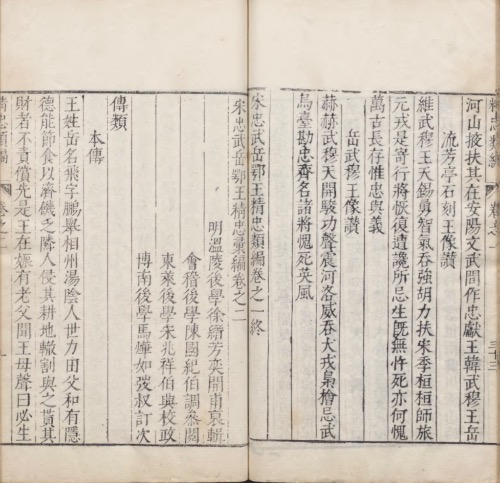 河山掖扶其在安陽文武間作忠獻王韓武穆王岳
流芳亭石刻王像讃
維武穆王天錫勇智氣吞強胡力扶宋季桓桓師旅
元戎是寄行將恢復遭讒所忌生既無忤死亦何愧
萬古長存惟忠與義
岳武穆王像讃
赫赫武穆天開駿功聲震河洛威吞犬戎梟檜忌武
馬臺勘忠齊名諸將愧死英風
宋忠武岳鄂王精忠類編卷之一終
宋忠武岳鄂王精忠彙編卷之二
明溫陵後學徐縉芳奕開甫裒輯
會稽後學陳國紀伯調叅閱
東萊後學宋兆祥伯興校政
博南後學馬燁如弢叔訂次
傳類
本傳
王姓岳名飛字鵬舉相州湯隂人世力田父和有隱
德能節食以濟饑之隣人侵其耕地輙割與之貰其
財者不責償先是王在娠有老父聞王母聲曰必生
精忠類編
卷之二
一
卷之一
三十三